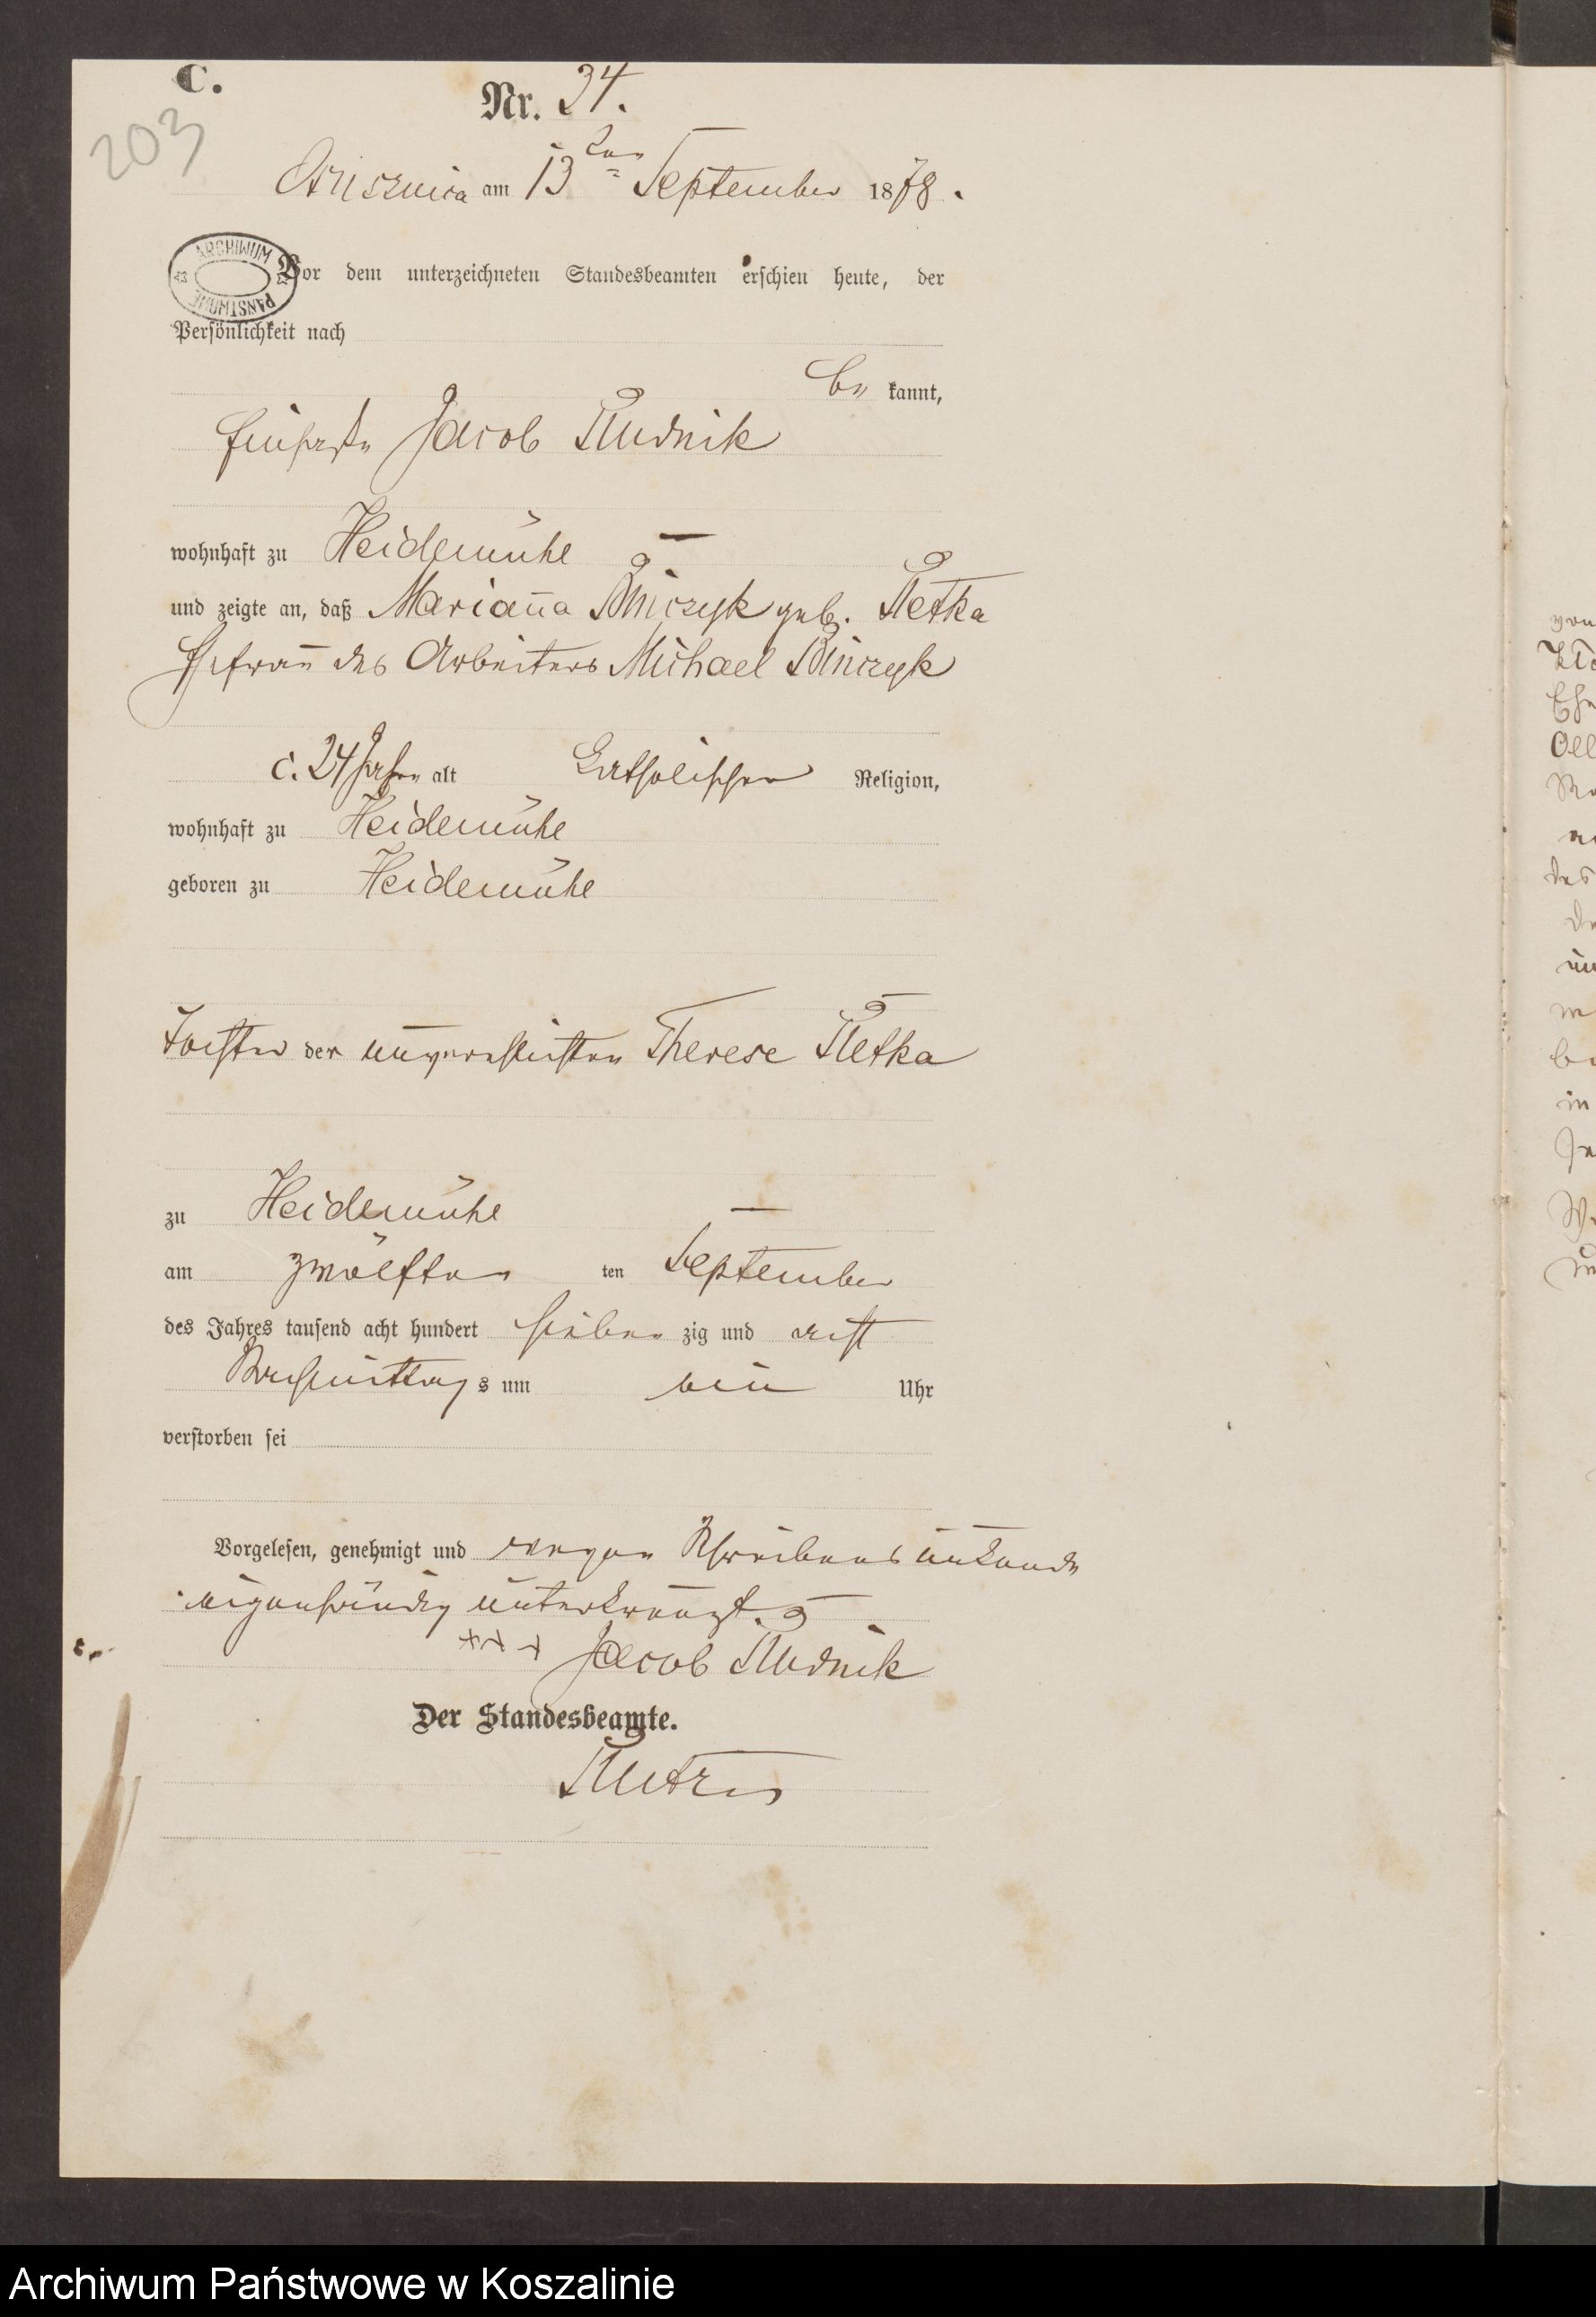 C.
Nr. 34.
203
Ossusznica am 13ten September 1878.
ARCHIWUM PAŃSTWOWE
Vor dem unterzeichneten Standesbeamten erschien heute, der
Persönlichkeit nach
be kannt,
Jacob Rudnik
wohnhaft zu Heidemühe
und zeigte an, daß Marianna Binczyk geb. Pletka
Ehefrau des Arbeiters Michael Binczyk
c. 24 Jahre alt katholischer Religion,
wohnhaft zu Heidemühe
geboren zu Heidemühe
Tochter der unverehelichten Therese Pletka
zu Heidemühe
am zwölften ten September
des Jahres tausend acht hundert sieben zig und acht
Nachmittag s um ein Uhr
verstorben sei
Vorgelesen, genehmigt und wegen Schreibensunkunde
eigenhändig unterkreuzt.
+++ Jacob Rudnik
Der Standesbeamte.
Archiwum Państwowe w Koszalinie